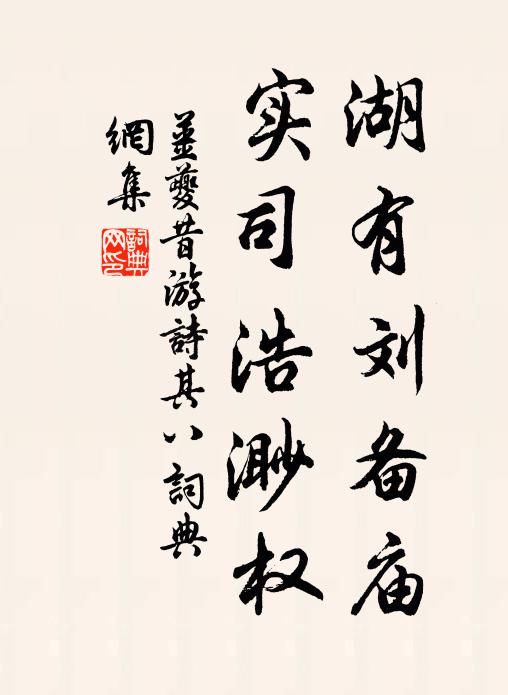 湖有刘备庙
实司浩渺权
姜夔昔游詩其八 詞典
網集
詞典網印